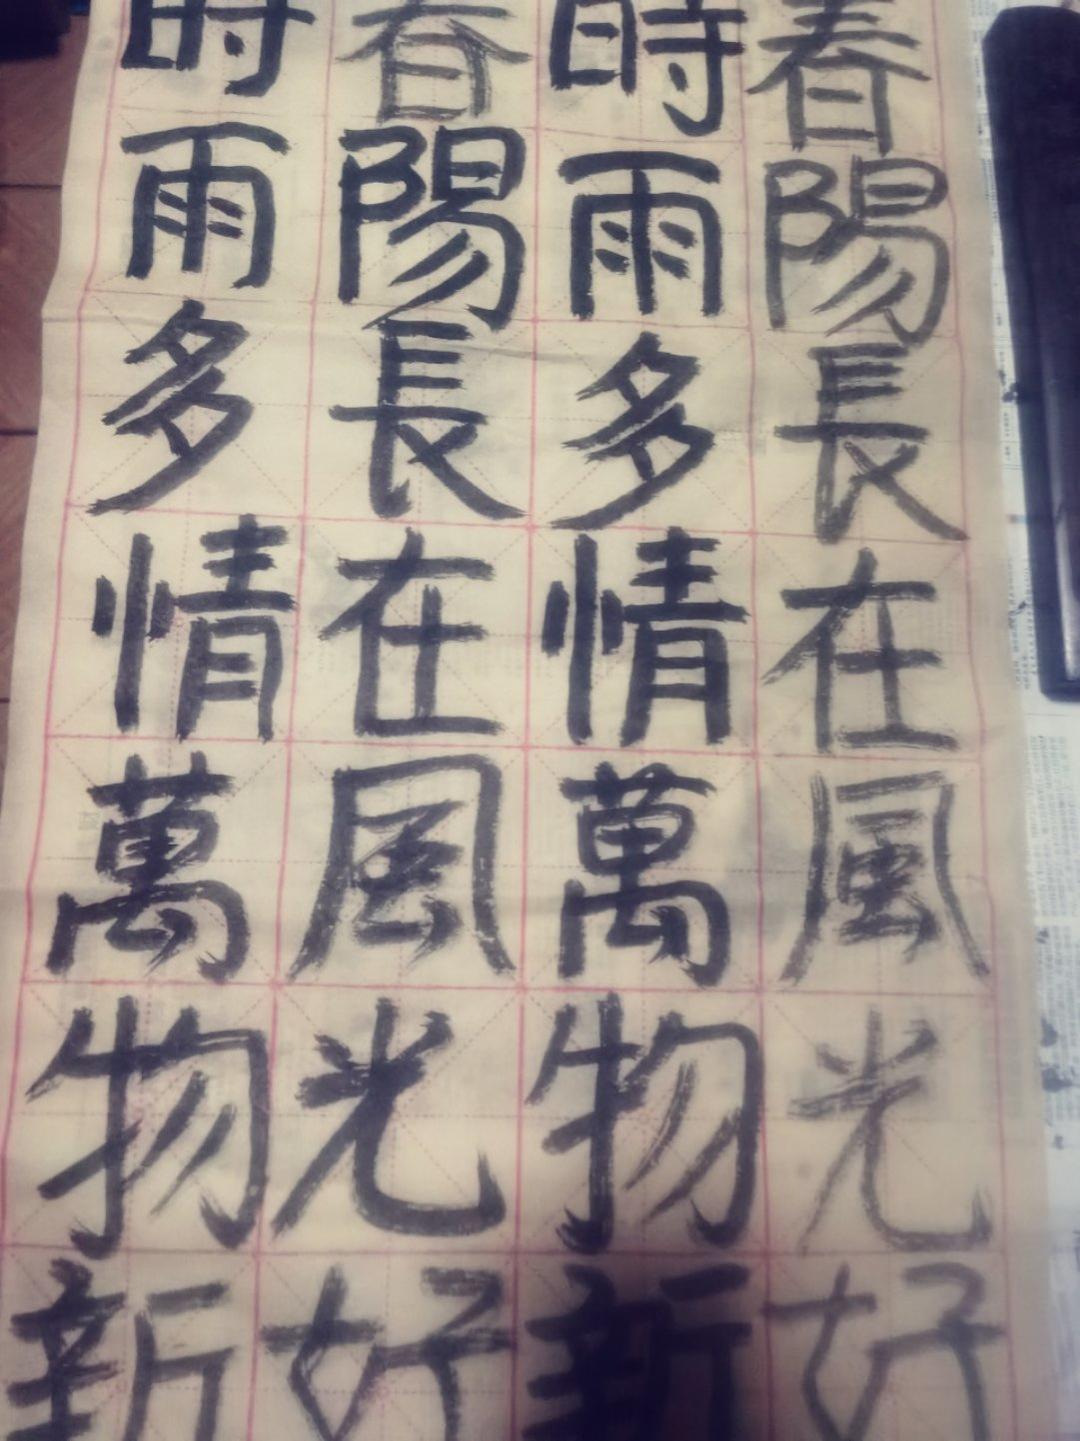 春陽長在風光好
時雨多情萬物新
春陽長在風光好
時雨多情萬物新